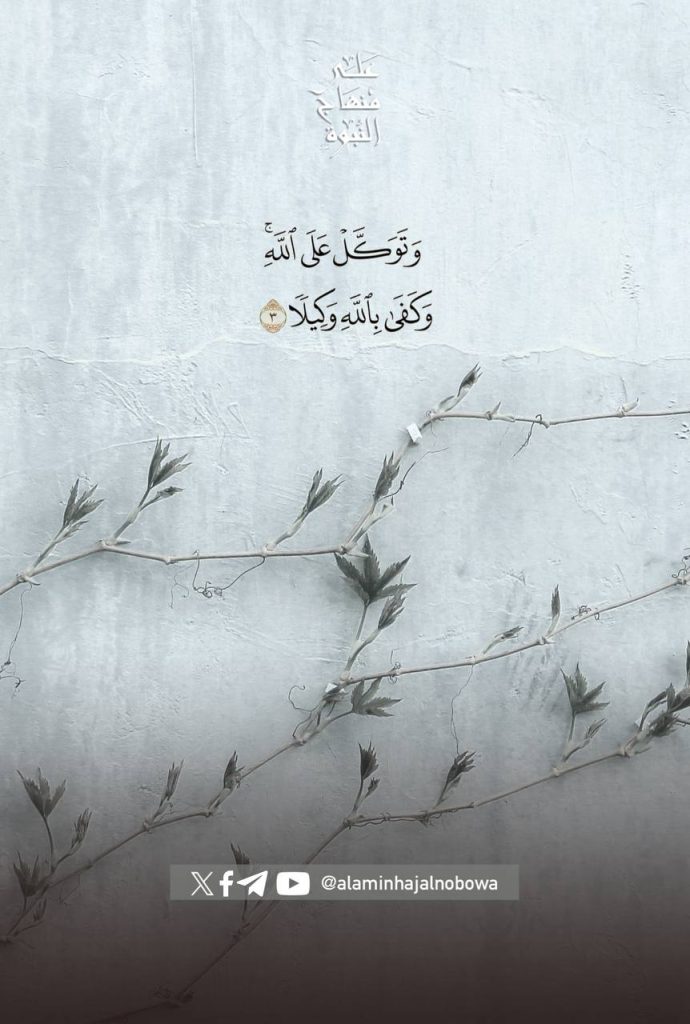 على
منهاج
النبوة
وَتَوَكَّلۡ عَلَى ٱللَّهِۚ
وَكَفَىٰ بِٱللَّهِ وَكِيلٗا ٣
@alaminhajalnobowa